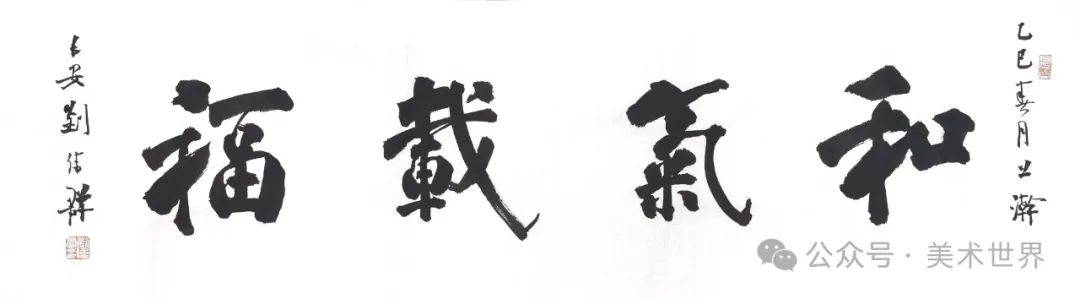 乙巳春月上澣
和氣載福
長安劉
公众号 · 美术世界